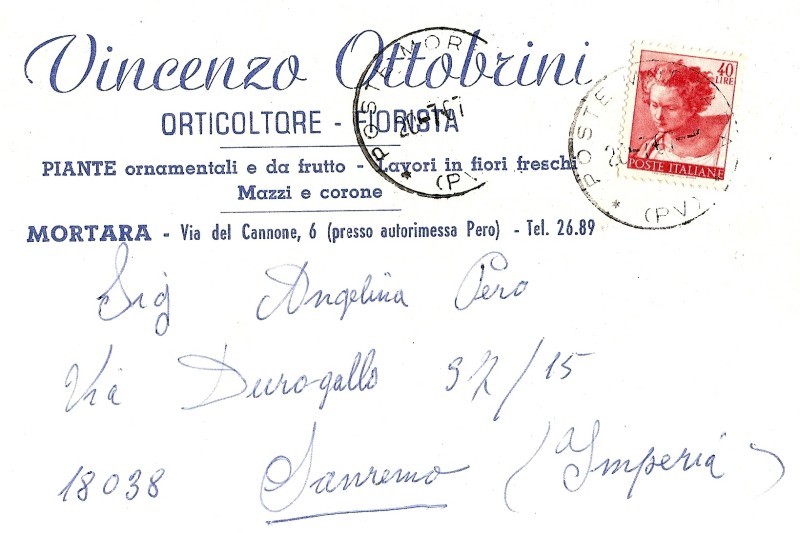 Vincenzo Ottobrini
ORTICOLTORE - FIORISTA
PIANTE ornamentali e da frutto - Lavori in fiori freschi
Mazzi e corone
MORTARA - Via del Cannone, 6 (presso autorimessa Pero) - Tel. 26.89
POSTE MOR
20-7-67
(PV)
40
LIRE
POSTE ITALIANE
POSTE
(PV)
Sig Angelina Pero
Via Durogallo 37/15
18038 Sanremo (Imperia)